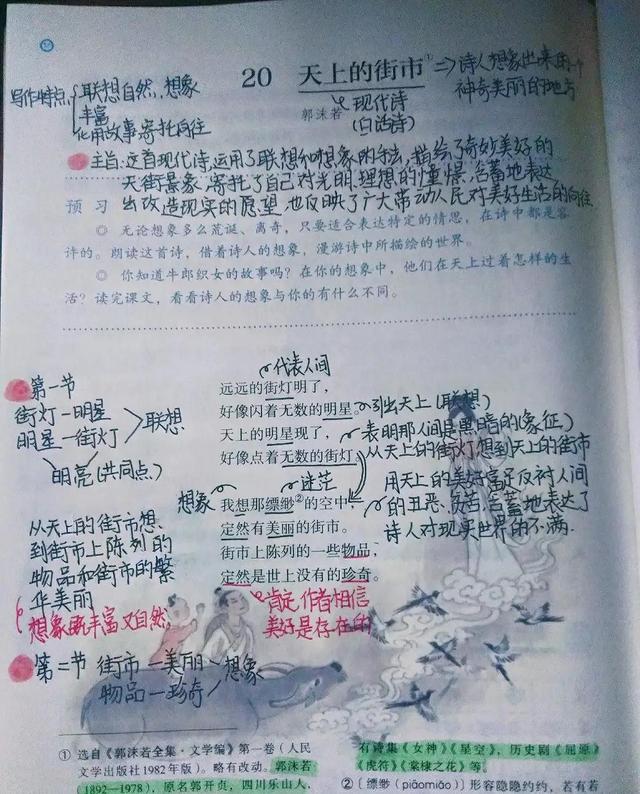 20 天上的街市①
⇒诗人想象出来的一个
神奇美丽的地方
写作特点
联想自然，想象
丰富
化用故事寄托向往
郭沫若
现代诗
(白话诗)
主旨:这首现代诗,运用了联想和想象的手法,描绘了奇妙美好的
天街景象,寄托了自己对光明、理想的憧憬,含蓄地表达
出改造现实的愿望,也反映了广大劳动人民对美好生活的向往
预 习
◎ 无论想象多么荒诞、离奇，只要适合表达特定的情思，在诗中都是容
许的。朗读这首诗，借着诗人的想象，漫游诗中所描绘的世界。
◎ 你知道牛郎织女的故事吗？在你的想象中，他们在天上过着怎样的生
活？读完课文，看看诗人的想象与你的有什么不同。
代表人间
远远的街灯明了，
好像闪着无数的明星。
天上的明星现了，
好像点着无数的街灯。
引出天上(联想)
表明那人间是黑暗的(象征)
从天上的街灯想到天上的街市
用天上的美好富足反衬人间
的丑恶、贫苦,含蓄地表达了
诗人对现实世界的不满.
第一节
街灯—明星
明星—街灯
联想
明亮(共同点)
迷茫
想象
我想那缥缈②的空中，
定然有美丽的街市。
街市上陈列的一些物品，
定然是世上没有的珍奇。
从天上的街市想
到街市上陈列的
物品和街市的繁
华美丽
想象既丰富又自然
肯定,作者相信
美好是存在的
第二节 街市—美丽
物品—珍奇
想象
① 选自《郭沫若全集·文学编》第一卷（人民
文学出版社1982年版）。略有改动。郭沫若
（1892—1978），原名郭开贞，四川乐山人，
有诗集《女神》《星空》，历史剧《屈原》
《虎符》《棠棣之花》等。
②〔缥缈（piāomiǎo）〕形容隐隐约约，若有若